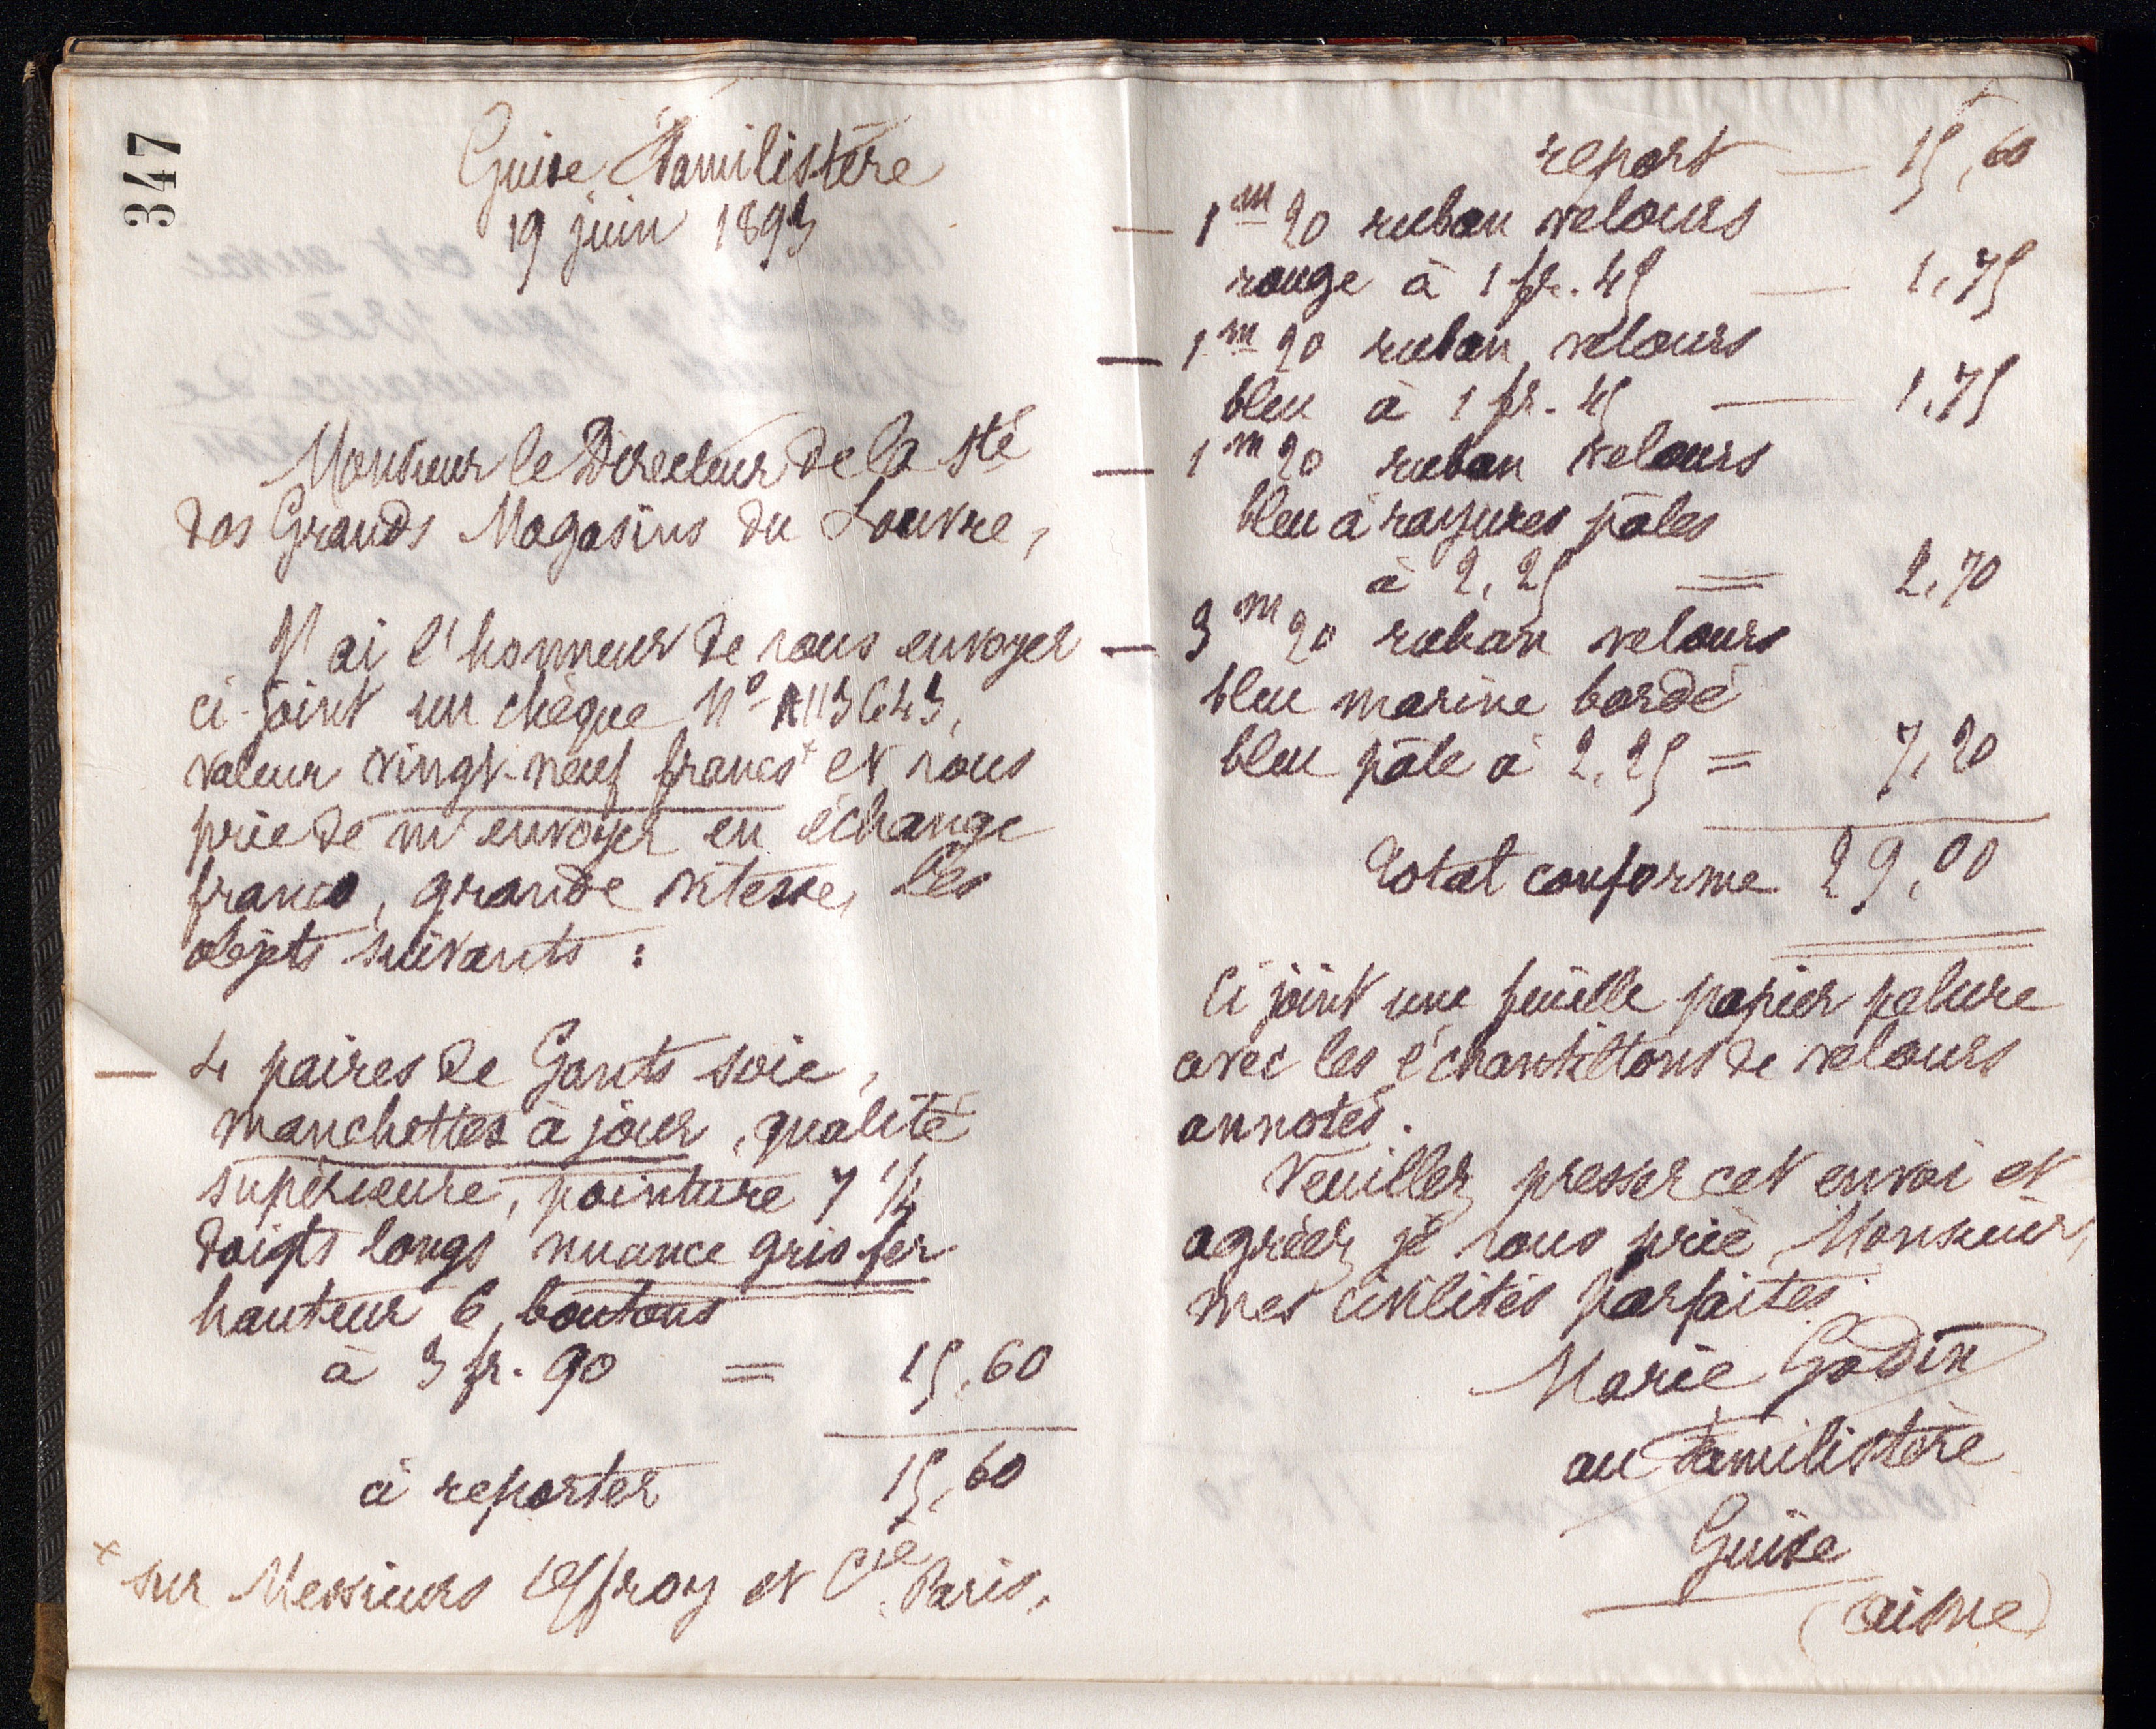 347
Guise, Familistère
19 juin 1893
Monsieur le Directeur de la Sté
des Grands Magasins du Louvre,
J'ai l'honneur de vous envoyer
ci-joint un chèque No 113643,
valeur vingt-neuf francs + et vous
prie de m'envoyer en échange
franco, grande vitesse, les
objets suivants :
— 4 paires de Gants soie,
manchettes à jour, qualité
supérieure, pointure 7 1/4
doigts longs nuance gris fer
hauteur 6 boutons
à 3 fr. 90 = 15,60
à reporter 15,60
+ sur Messieurs Offroy et Cie Paris.
report — 15,60
— 1 m 20 ruban velours
rouge à 1 fr. 45 — 1,75
— 1 m 20 ruban velours
bleu à 1 fr. 45 — 1,75
— 1 m 20 ruban velours
bleu à rayures pâles
à 2,25 = 2,70
— 3 m 20 ruban velours
bleu marine bordé
bleu pâle à 2,25 = 7,20
Total conforme 29,00
Ci joint une feuille papier pelure
avec les échantillons de velours
annotés.
Veuillez presser cet envoi et
agréer, je vous prie, Monsieur,
mes civilités parfaites
Marie Godin
au Familistère
Guise
(Aisne)